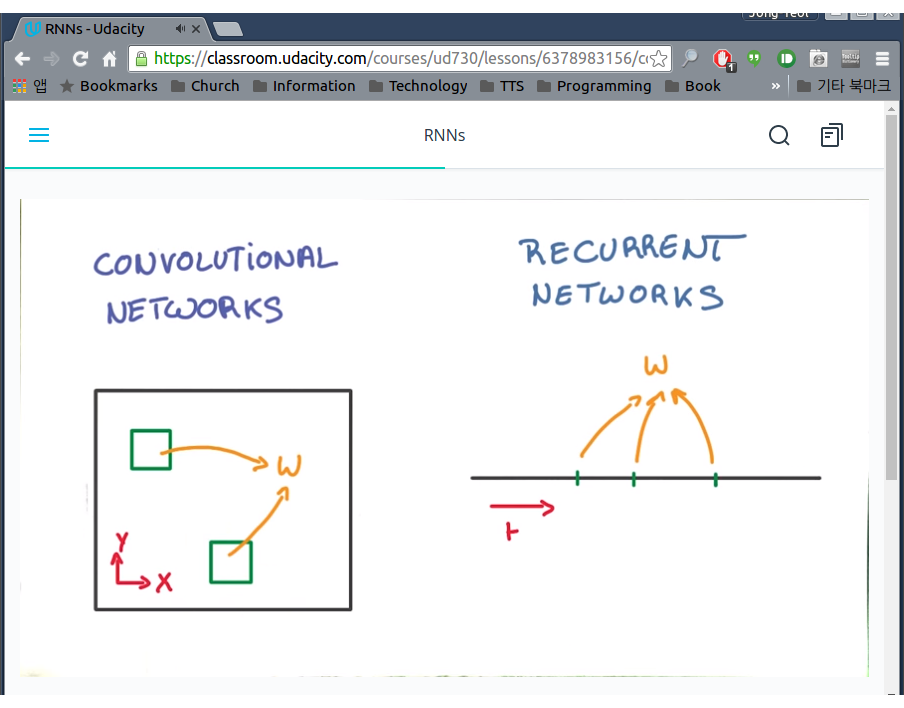 RNNs - Udacity
https://classroom.udacity.com/courses/ud730/lessons/6378983156/c
앱 Bookmarks Church Information Technology TTS Programming Book » 기타 북마크
RNNs
CONVOLUTIONAL
NETWORKS
RECURRENT
NETWORKS
W
W
Y
X
t